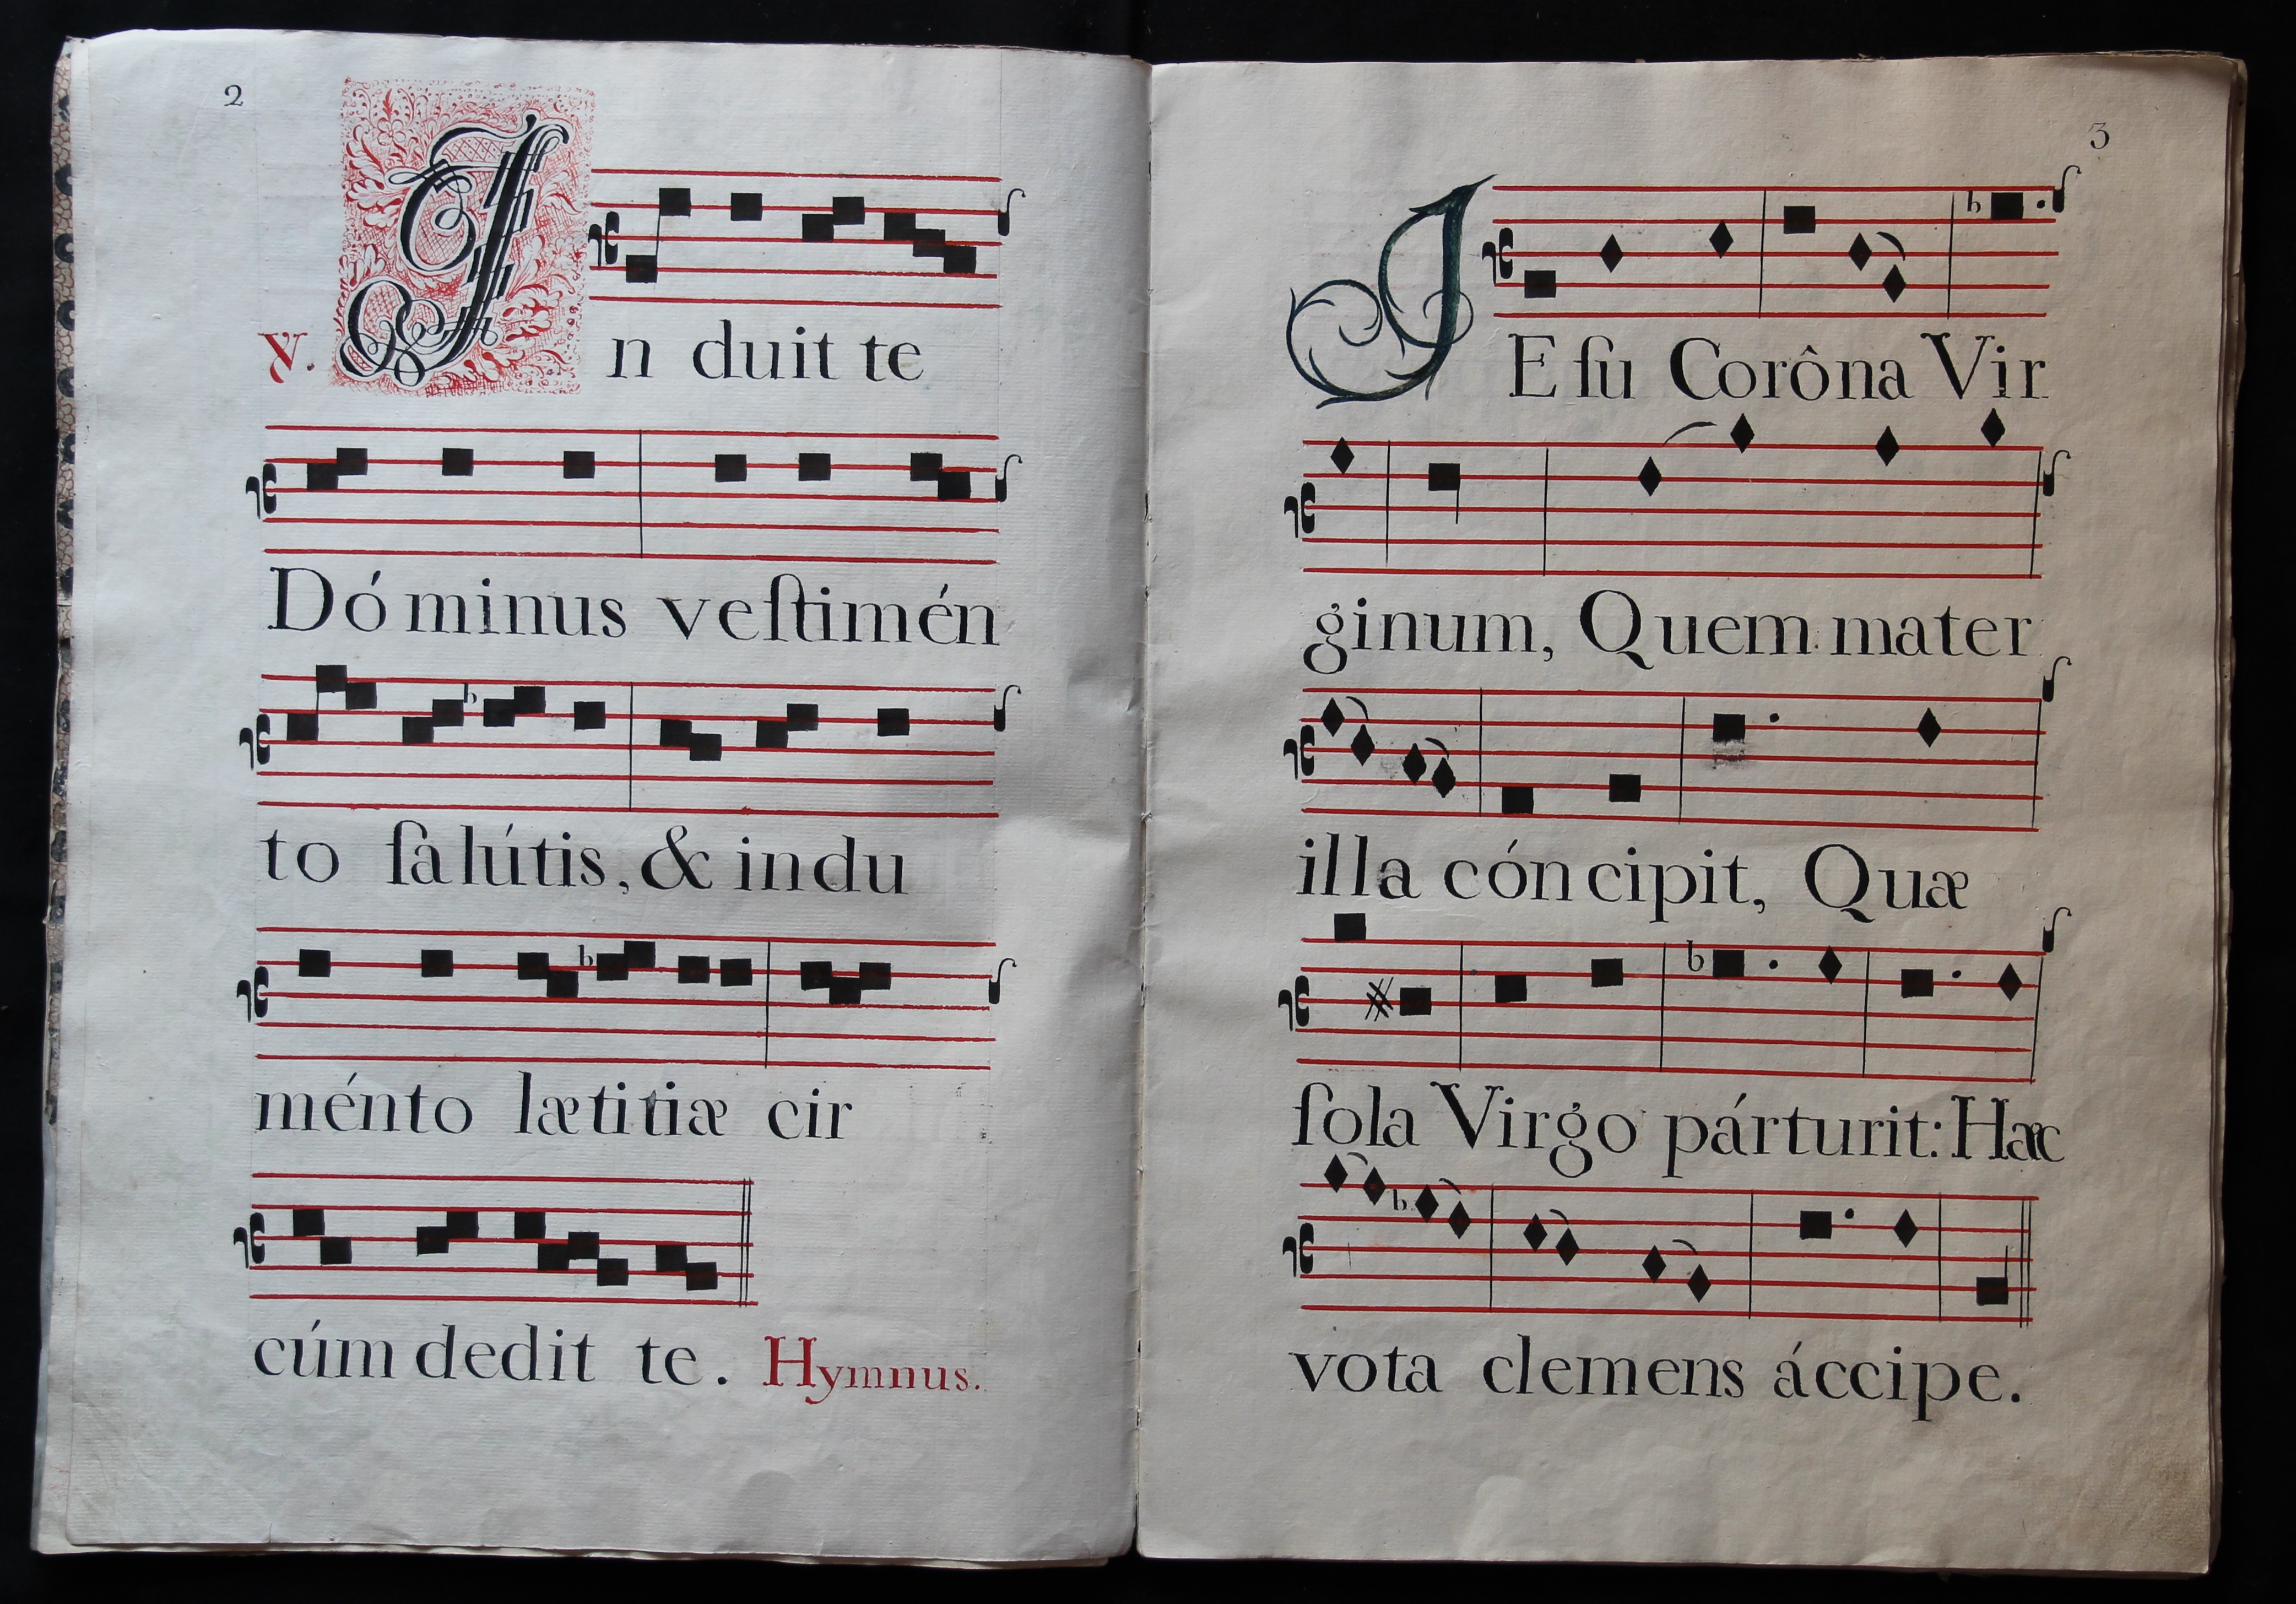 2
℣. In duit te
Dó minus veſtimén
to ſalútis, & indu
ménto lætitiæ cir
cúm dedit te. Hymnus.
3
JEſu Corôna Vir
ginum, Quem mater
illa cóncipit, Quæ
ſola Virgo párturit: Hæc
vota clemens áccipe.